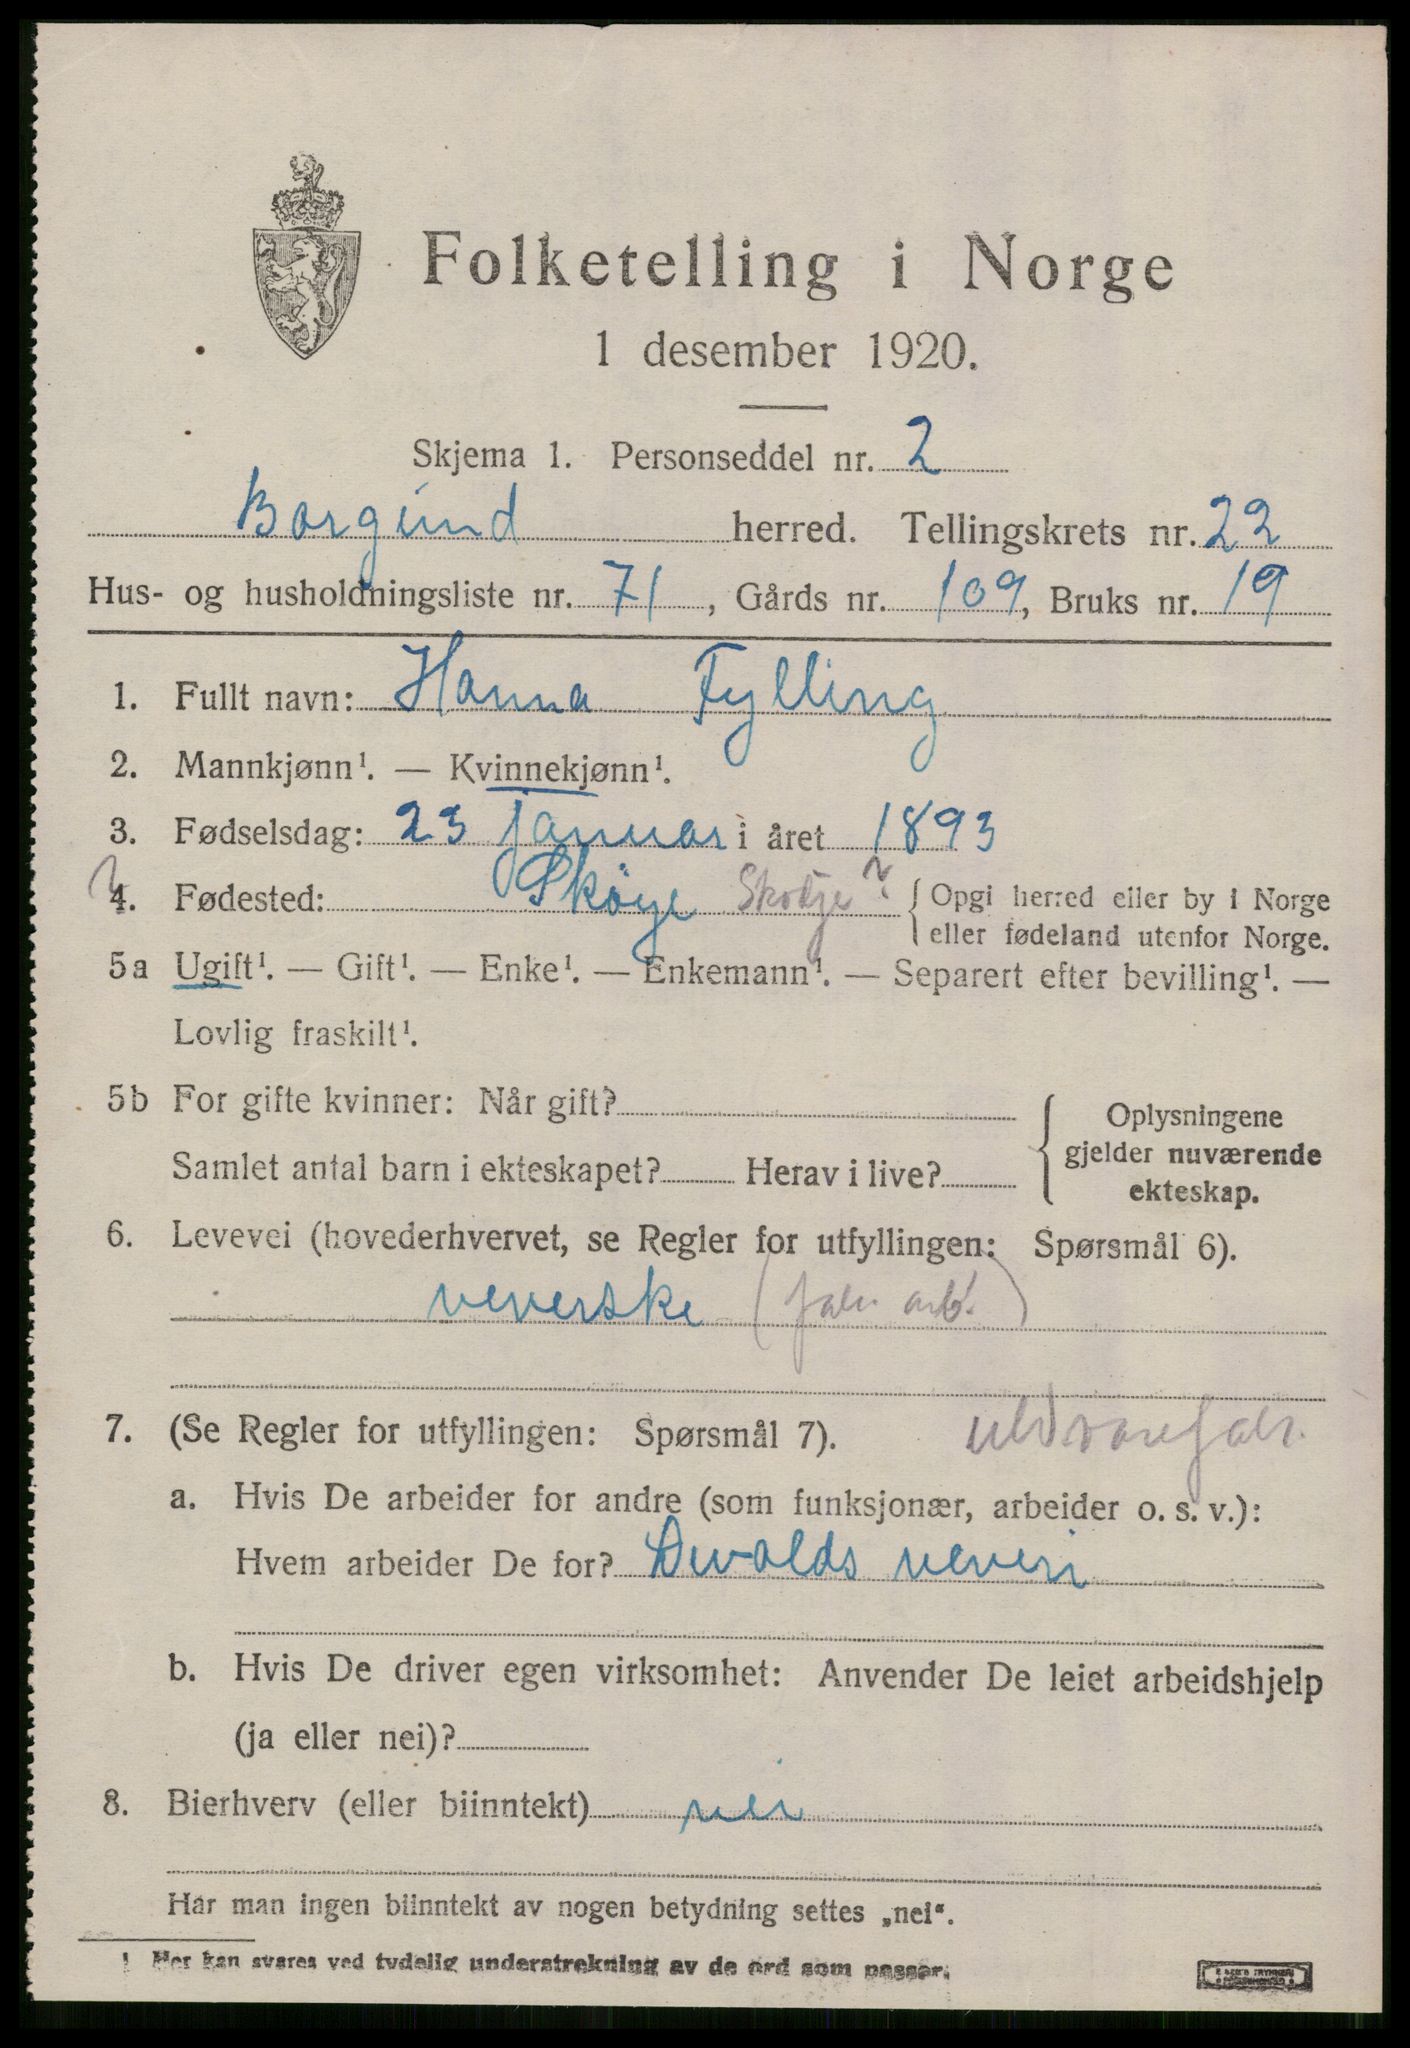 Folketelling i Norge
1 desember 1920.
Skjema 1. Personseddel nr. 2
Borgund herred. Tellingskrets nr. 22
Hus- og husholdningsliste nr. 71, Gårds nr. 109, Bruks nr. 19
1. Fullt navn: Hanna Fylling
2. Mannkjønn¹. — Kvinnekjønn¹.
3. Fødselsdag: 23 januar i året 1893
? 4. Fødested: Sköye Skodje? { Opgi herred eller by i Norge
eller fødeland utenfor Norge.
5a Ugift¹. — Gift¹. — Enke¹. — Enkemann¹. — Separert efter bevilling¹. —
Lovlig fraskilt¹.
5b For gifte kvinner: Når gift?
Samlet antal barn i ekteskapet? Herav i live?
{ Oplysningene
gjelder nuværende
ekteskap.
6. Levevei (hovederhvervet, se Regler for utfyllingen: Spørsmål 6).
veverske (fabr. arb.)
7. (Se Regler for utfyllingen: Spørsmål 7). uldvarefabr.
a. Hvis De arbeider for andre (som funksjonær, arbeider o. s. v.):
Hvem arbeider De for? Devolds veveri
b. Hvis De driver egen virksomhet: Anvender De leiet arbeidshjelp
(ja eller nei)?
8. Bierhverv (eller biinntekt) nei
Har man ingen biinntekt av nogen betydning settes „nei“.
¹ Her kan svares ved tydelig understrekning av de ord som passer.